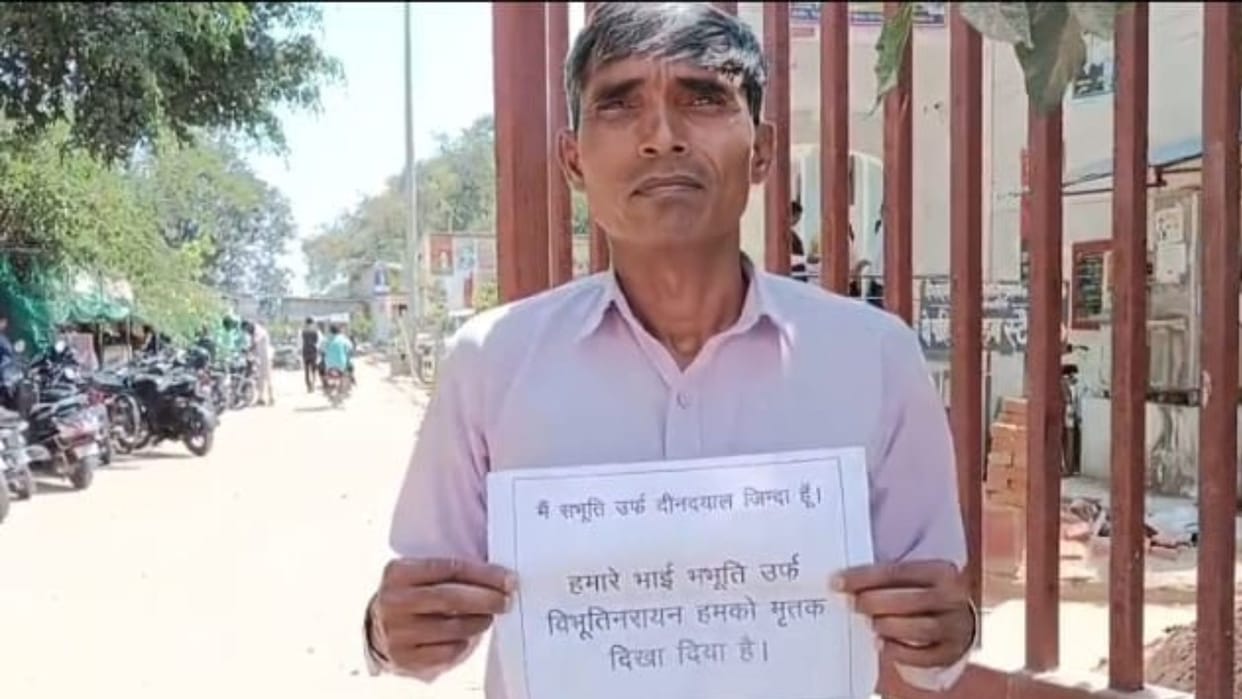 मैं सभूति उर्फ दीनदयाल जिन्दा हूँ।
हमारे भाई भभूति उर्फ
विभूतिनरायन हमको मृतक
दिखा दिया है।